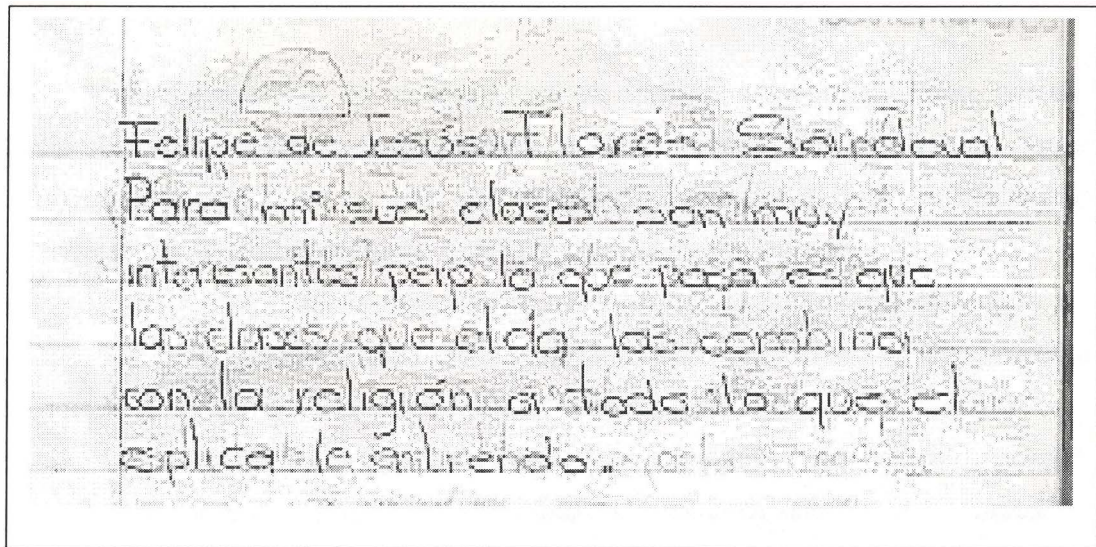 Felipe de Jesús Flores Sandoval
Para mi sus clases son muy
interesantes pero lo que pasa es que
las clases que el da las combina
con la religión a todo lo que el
esplica le entiendo.